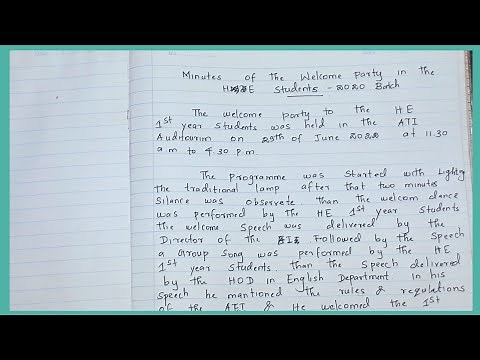 Minutes of the Welcome Party in the
Students - 2020 Batch
The welcome party to the HE
1st year students was held in the ATI
Auditourim on 29th of June 2022 at 11.30
a.m to 4.30 p.m.
The programme was started with Lighting
the traditional lamp after that two minutes
Silance was observate than the welcom dance
was performed by the HE 1st year students
the welcome Speech was delivered by the
Director of the Followed by the Speech
a Group Song was performed by the HE
1st year students than the Speech delivered
by the HOD in English Department. In his
Speech he mantioned the rules & regulations
of the ATI & He welcomed the 1st